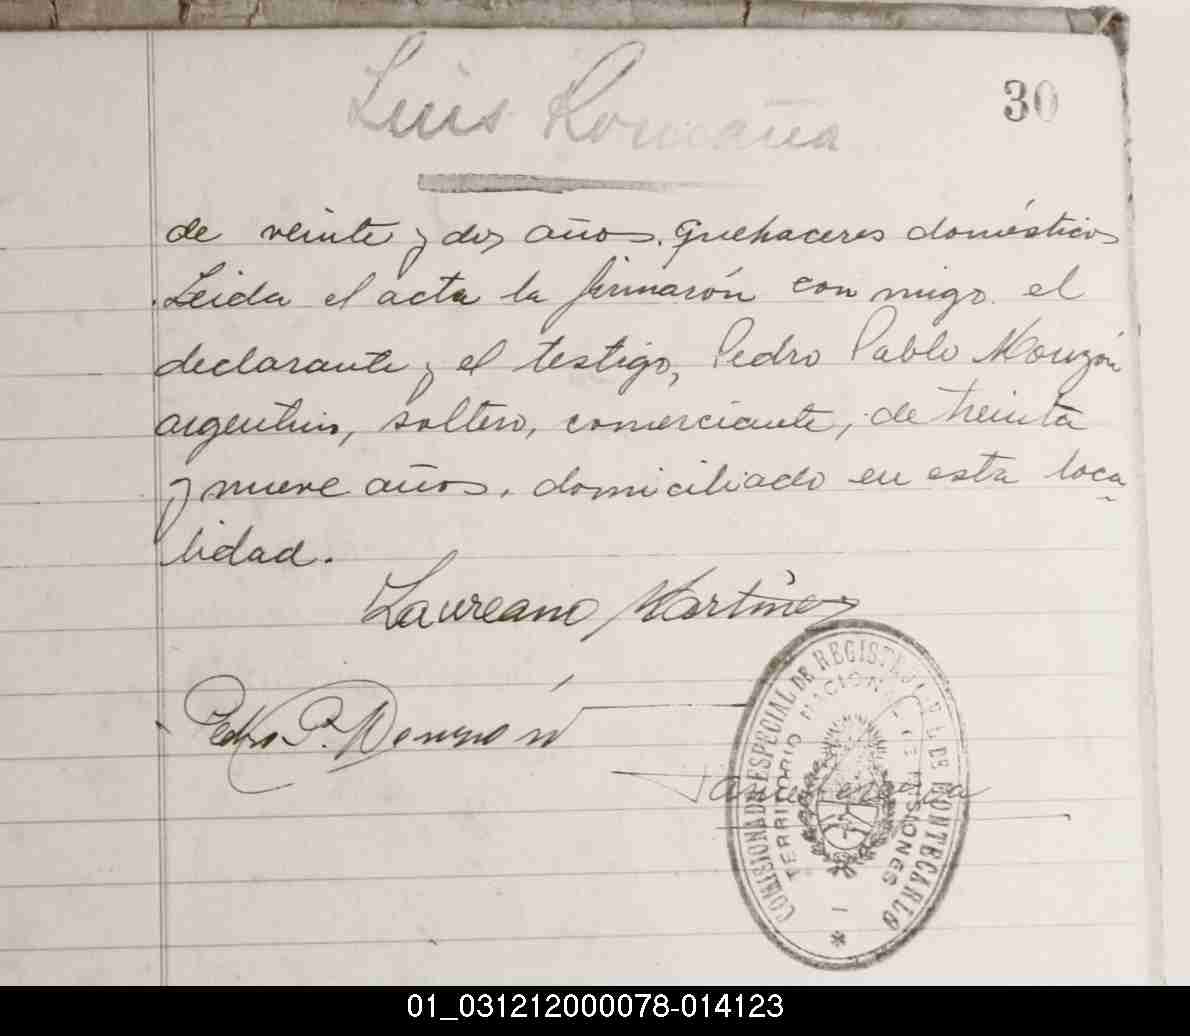 Luis Romaña
30
de veinte y dos años. Quehaceres domésticos
Leida el acta la firmarón con migo el
declarante y el testigo, Pedro Pablo Monzón
argentino, soltero, comerciante, de treinta
y nueve años, domiciliado en esta loca
lidad.
Laureano Martinez
Pedro P. Monzón
COMISIONADO ESPECIAL DE REGISTRO CIVIL DE MONTECARLO
TERRITORIO NACIONAL DE MISIONES
01_031212000078-014123